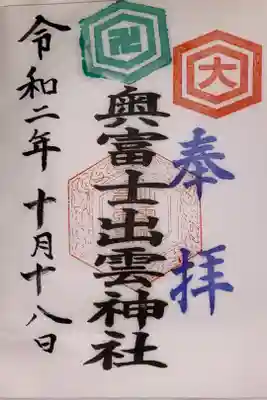 大
奉拝
卍
奥富士出雲神社
令和二年十月十八日